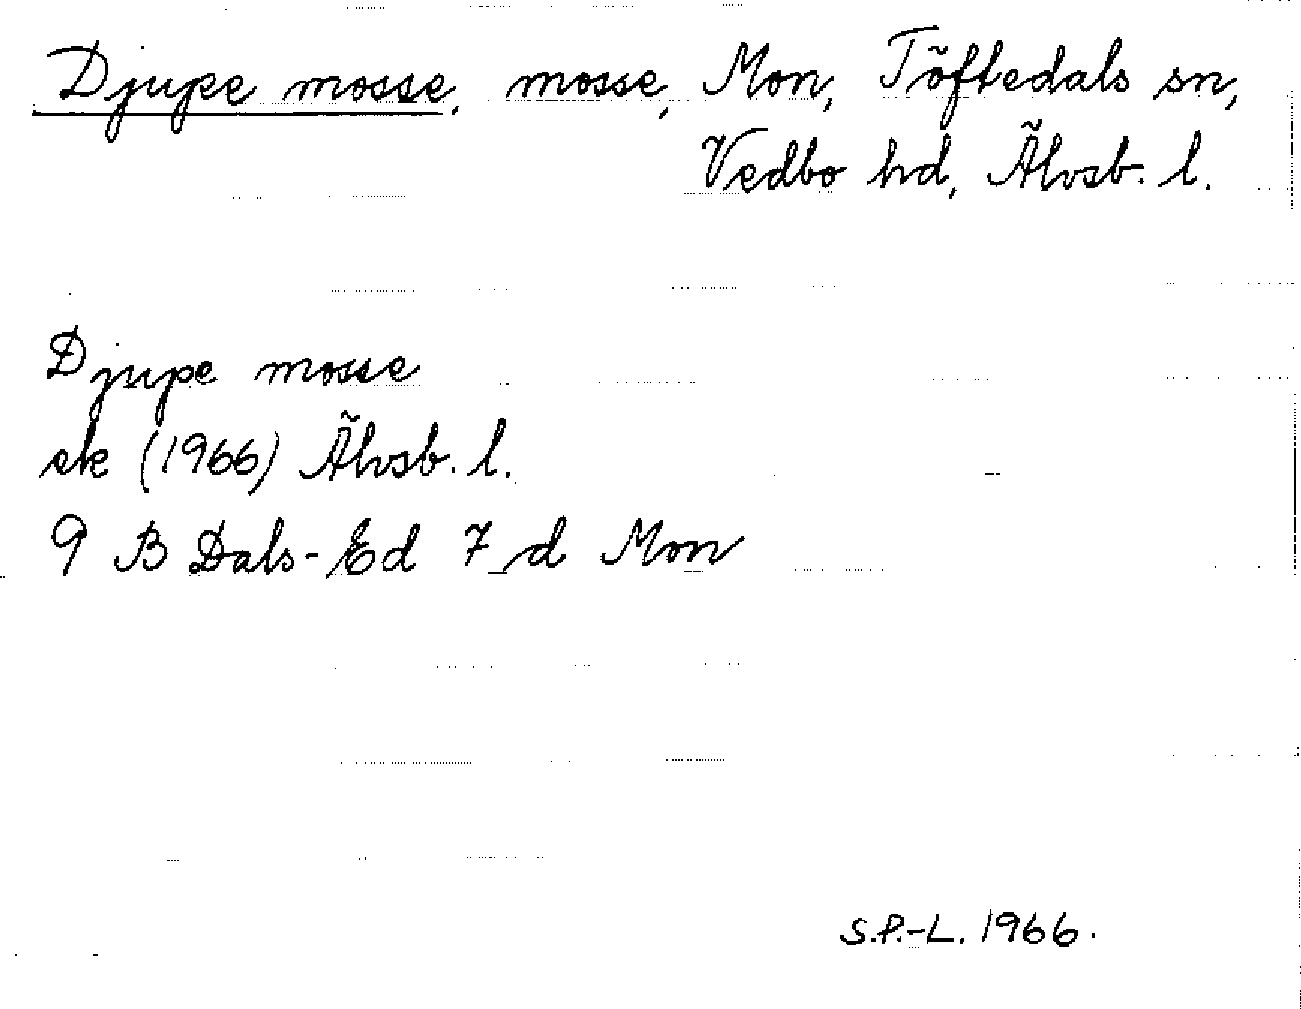 Djupe mosse, mosse, Mon, Töftedals sn,
Vedbo hd, Älvsb. l.
Djupe mosse
ek (1966) Älvsb. l.
9 B Dals-Ed 7 d Mon
S.P.-L. 1966.